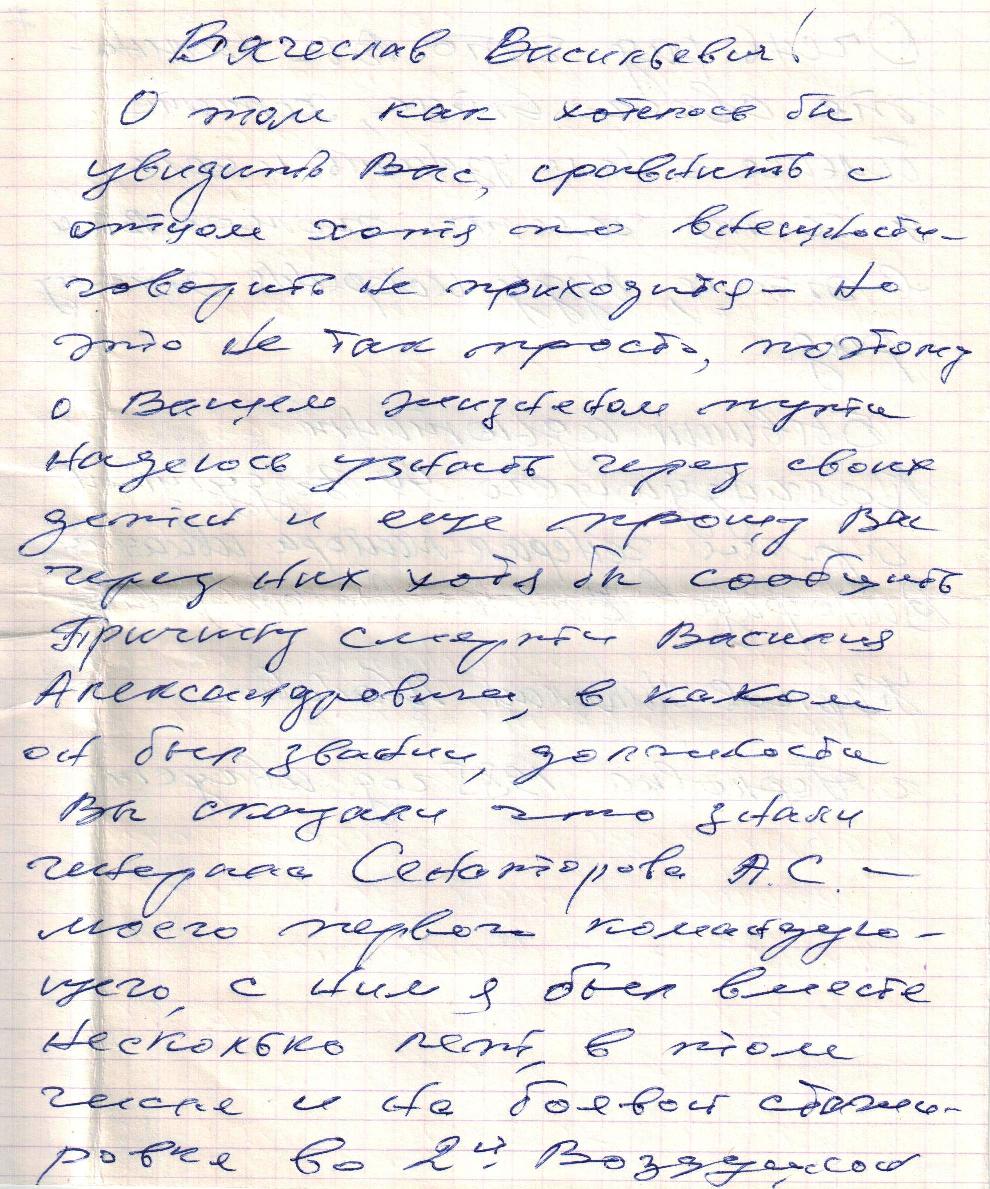 Вячеслав Васильевич!
О том как хотелось бы
увидить Вас, сравнить с
отцом хотя по внешности-
говорить не приходится – но
это не так просто, поэтому
о Вашем жизненом пути
надеюсь узнать через своих
детей и еще прошу Вас
через них хотя бы сообщить
Причину смерти Василия
Александровича, в каком
он был звании, должности
Вы сказали что знали
генерала Сенаторова А.С. –
моего первого командую-
щего, с ним я был вместе
несколько лет, в том
числе и на боевой стажи-
ровке во 2й Воздушной